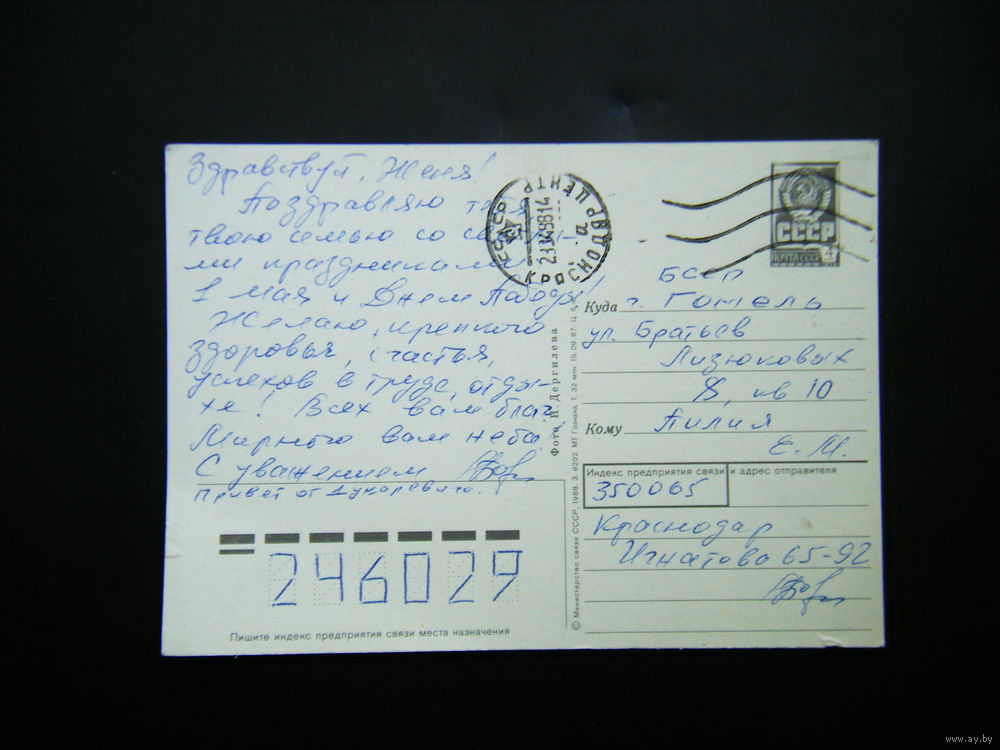 Здравствуй, Женя!
Поздравляю тебя,
твою семью со славны-
ми праздниками
1 мая и Днем Победы!
Желаю, крепкого
здоровья, счастья,
успехов в труде, отды-
хе! Всех вам благ
Мирного вам неба!
С уважением
Привет от Дукаревича.
246029
Пишите индекс предприятия связи места назначения
СССР КРАСНОДАР ЦЕНТР
а
Фото Н. Дергилева
© Министерство связи СССР. 1988. З. 6202. МТ Гознака. Т. 32 млн. 15.09.87. Ц.
СССР
ПОЧТА СССР 4
БССР
Куда г. Гомель
ул. Братьев
Лизюковых
8, кв 10
Кому Пилия
Е. М.
Индекс предприятия связи и адрес отправителя
350065
Краснодар
Игнатова 65-92
www.ay.by